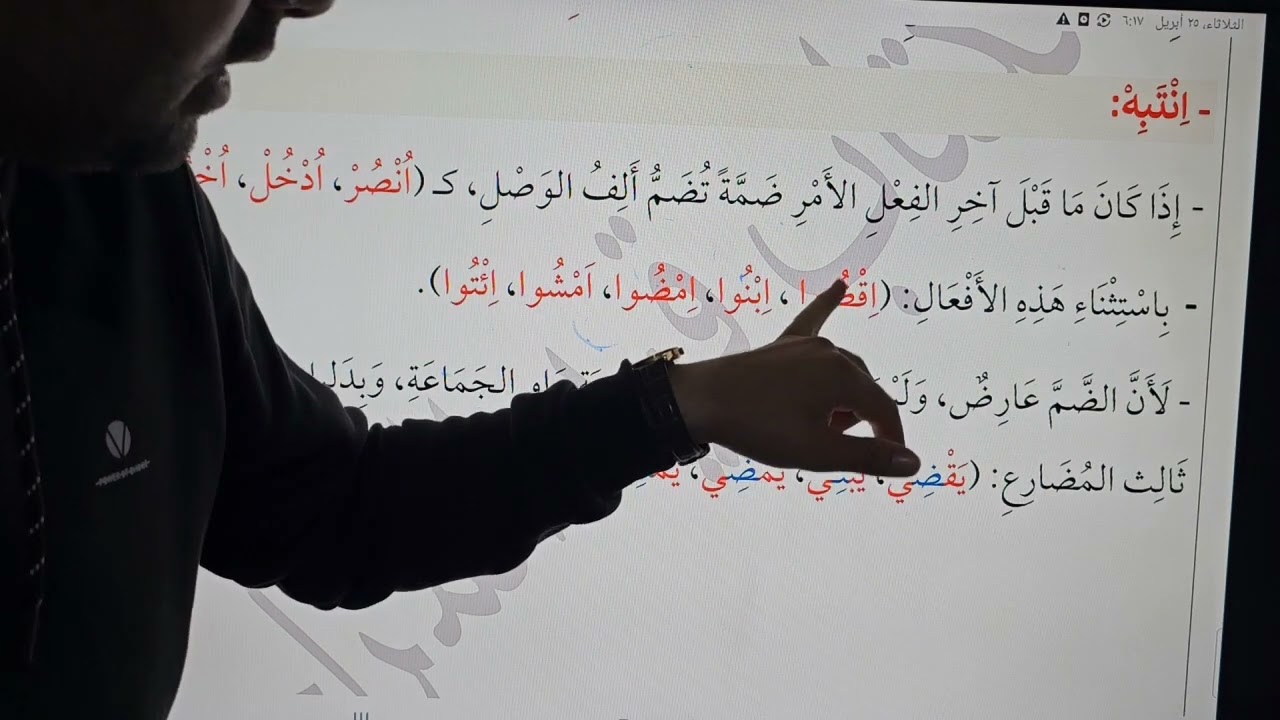 الثلاثاء، ٢٥ أبريل ٦:١٧
- اِنْتَبِهْ:
- إِذَا كَانَ مَا قَبْلَ آخِرِ الفِعْلِ الأَمْرِ ضَمَّةً تُضَمُّ أَلِفُ الوَصْلِ، كـ (اُنْصُرْ، اُدْخُلْ،
- بِاسْتِثْنَاءِ هَذِهِ الأَفْعَالِ: ( ، اِبْنُوا، اِمْضُوا، اَمْشُوا، اِئْتُوا).
- لَأَنَّ الضَّمَّ عَارِضٌ، الجَمَاعَةِ،
ثَالِث المُضَارِعِ: (يَقْضِي، يَبْنِي، يَمْضِي،